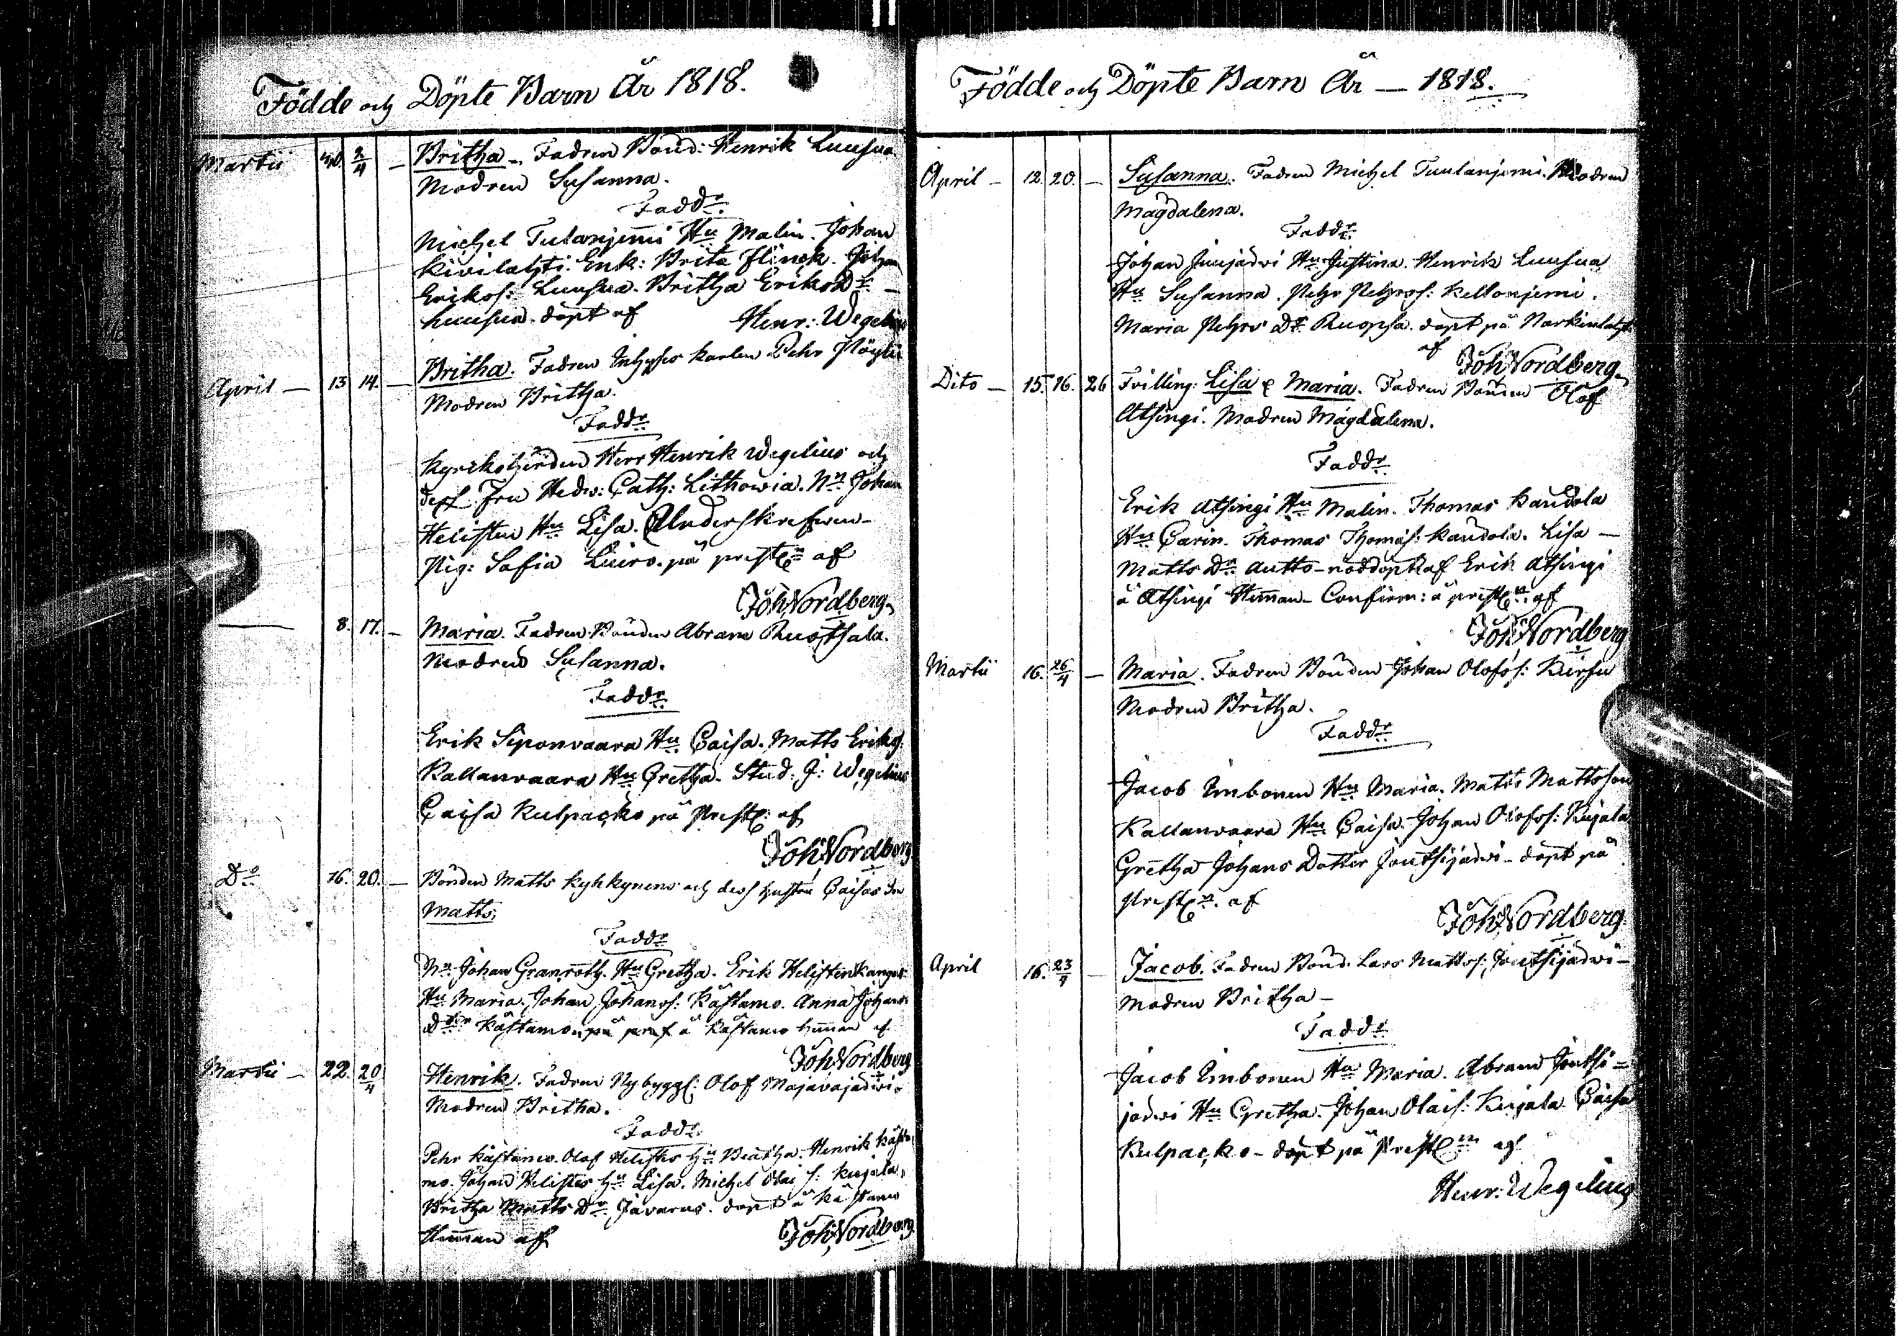 Födde och Döpte Barn År 1818.
Martii 2/4 – Britha – Fadren Bond: Henrik Luusua
Modren Susanna.
Fadd:r
Michel Tulanjemi Hu Malin. Johan
Kivilahti. Enk: Brita Flinck. Johan
Erikss: Luusua. Britha Eriks Dr –
Luusua. döpt af Henr: Wegelius
April – 13 14. – Britha. Fadren Inhyses karlen Pehr
Modren Britha.
Fadd:r
Kyrkoherden Herr Henrik Wegelius och
dess Fru Hedv: Cath: Lithovia. Nn Johan
Helisten Hu Lisa. Underskrefwen –
Pig: Sofia Luiro. på prest af
Joh Nordberg
8. 17. – Maria. Fadren Bonden Abram Ruotsala.
Modren Susanna.
Fadd:r
Erik Siponvaara Hu Caisa. Matts Eriks
Kallanvaara Hu Gretha. Stud: J: Wegelius
Caisa Kulpacko på Prest: af
Joh Nordberg
Do 16. 20. – Bonden Matts Kyhkynens och dess hustru Caisas Son
Matts.
Fadd:r
Nn Johan Granroth. Hu Gretha. Erik Helisten
Hu Maria. Johan Johanss: Kästamo. Anna Johans
Dr Kästamo. på å Kästamo Hemman af
Joh Nordberg
Martii – 22. 20/4 Henrik. Fadren Nybygg: Olof Majavajärvi.
Modren Britha.
Fadd:r
Pehr Kästamo. Olof Helisten Hu Beatha. Henrik Kästa-
mo. Johan Helisten Hu Lisa. Michel Olai s: Kujala.
Britha Matts Dr Javarus. döpt å Kästamo
Hemman af Joh Nordberg
Födde och Döpte Barn År – 1818.
April – 12. 20. – Susanna. Fadren Michel Tuulanjemi. Modren
Magdalena.
Fadd:r
Johan Hu Justina. Henrik Luusua
Hu Susanna. Pehr Pehrss: Kellonjemi.
Maria Pehrs Dr Ruopsa. döpt på
af Joh Nordberg
Dito – 15. 16. 26 Tvilling: Lisa & Maria. Fadren Bonden Olof
Atsingi. Modren Magdalena.
Fadd:r
Erik Atsingi Hu Malin. Thomas Kandola
Hu Carin. Thomas Thomass: Kandola. Lisa –
Matts Dr Autto – nöddöpt af Erik Atsingi
å Atsingi Hemman – Confirm: å prest af
Joh Nordberg
Martii 16. 26/4 – Maria. Fadren Bonden Johan Olofss: Kursu
Modren Britha.
Fadd:r
Jacob Imbonen Hu Maria. Matts Mattsson
Kallanvaara Hu Caisa. Johan Olofss: Kujala
Gretha Johans Dotter Joutsijärvi – döpt på
Prest af
Joh Nordberg
April 16. 23/4 – Jacob. Fadren Bond. Lars Mattss: Joutsijärvi –
Modren Britha –
Fadd:r
Jacob Imbonen Hu Maria. Abram Joutsi=
järvi Hu Gretha. Johan Olais: Kujala. Caisa
Kulpacko – döpt på Prest af
Henr: Wegelius